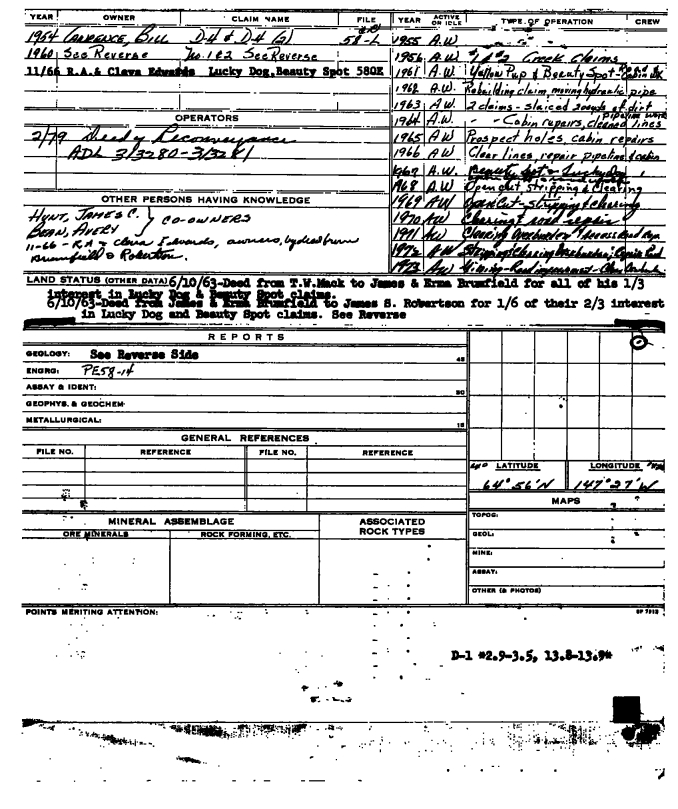 YEAR OWNER CLAIM NAME FILE
1954 Lawrence, Bill D4 & D4 (2) 58-L
1960 See Reverse No. 1 & 2 See Reverse
11/66 R.A. & Cleva Edwards Lucky Dog, Beauty Spot 580K
OPERATORS
2/79 Deed of Reconveyance
ADL 313280-313281
OTHER PERSONS HAVING KNOWLEDGE
HUNT, JAMES C. } CO-OWNERS
BEAN, AVERY
11-66 - R.A. & Cleva Edwards, owners, by deed from
Brumfield & Robertson.
YEAR ACTIVE OR IDLE TYPE OF OPERATION CREW
1955 A.W.
1956 A.W. #1 & #2 Creek claims
1961 A.W. Yellow Pup & Beauty Spot - Cabin
1962 A.W. Rebuilding claim, moving hydraulic pipe
1963 A.W. 2 claims - sluiced of dirt
1964 A.W. - - Cabin repairs, cleaned lines pipeline work
1965 A W Prospect holes, cabin repairs
1966 A W Clear lines, repair pipeline & cabin
1967 A.W. Beauty Spot & Lucky Dog
1968 A.W Open cut, stripping & Clearing
1969 AW Open Cut - stripping & clearing
1970 AW Clearing & road repair
1971 AW Clearing Overburden & Access Road
1972 AW Stripping, Clearing Overburden,
1973 AW Mining - Road improvement - Clear
LAND STATUS (OTHER DATA) 6/10/63-Deed from T.W.Mack to James & Erma Brumfield for all of his 1/3
interest in Lucky Dog & Beauty Spot claims.
6/10/63-Deed from James & Erma Brumfield to James S. Robertson for 1/6 of their 2/3 interest
in Lucky Dog and Beauty Spot claims. See Reverse
REPORTS
GEOLOGY: See Reverse Side 45
ENGRG: PE58-14
ASSAY & IDENT: 30
GEOPHYS. & GEOCHEM:
METALLURGICAL: 15
GENERAL REFERENCES
FILE NO. REFERENCE FILE NO. REFERENCE
LATITUDE LONGITUDE
64° 56'N 147° 27'W
MAPS
TOPOG:
GEOL:
MINE:
ASSAY:
OTHER (& PHOTOS)
MINERAL ASSEMBLAGE ASSOCIATED ROCK TYPES
ORE MINERALS ROCK FORMING, ETC.
POINTS MERITING ATTENTION:
D-1 *2.9-3.5, 13.8-13.9*